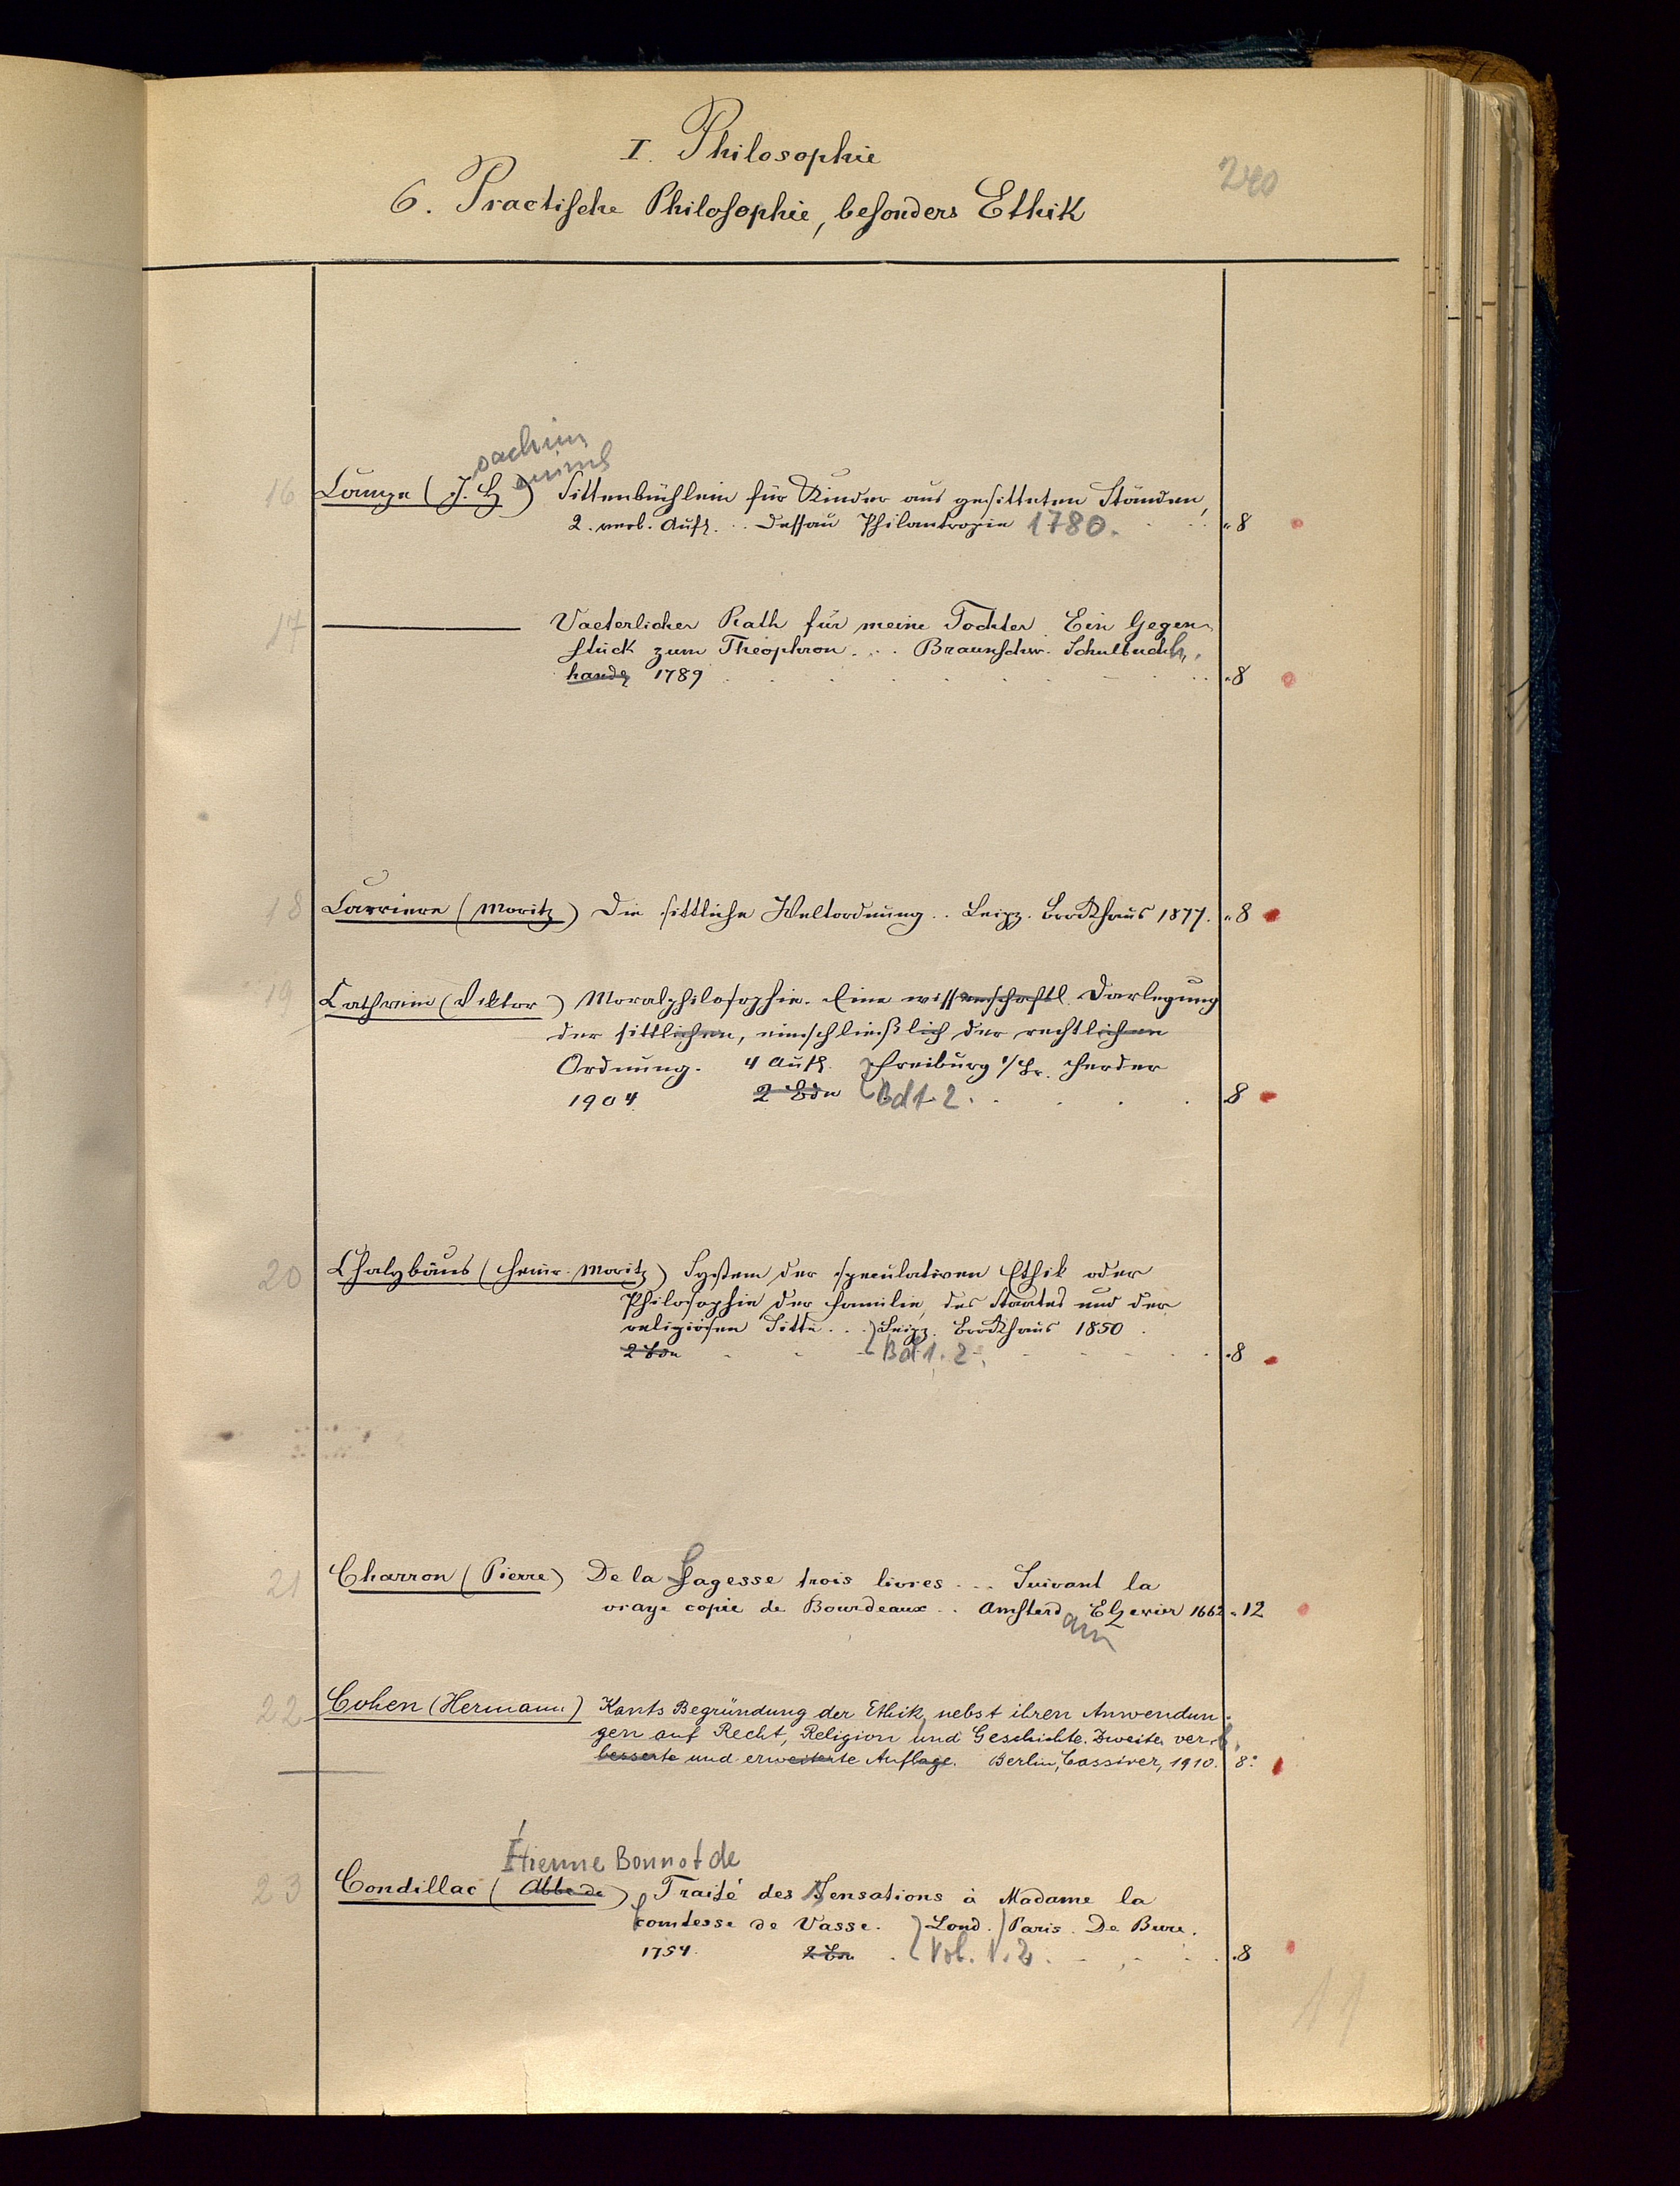 I. Philosophie
240
6. Practische Philosophie, besonders Ethik
oachim
einrich
16 Campe (J. H.) Sittenbüchlein für Kinder aus gesitteten Ständen,
2. verb. Aufl. .. Dessau Philantropin 1780. . . . „8
17 ——— Vaeterlicher Rath für meine Tochter. Ein Gegen-
stück zum Theophron ... Braunschw. Schulbuchh.
handlg 1789 . . . . . . . . „8
18 Carriere (Moritz) Die sittliche Weltordnung .. Leipz. Brockhaus 1877. „8
19 Cathrein (Viktor) Moralphilosophie. Eine wissenschaftl. Darlegung
der sittlichen, einschließlich der rechtlichen
Ordnung. 4 Aufl. Freiburg i/Br. Herder
1904. 2 Bde Bd 1. 2. . . . . 8
20 Chalybäus (Heinr. Moritz) System der speculativen Ethik oder
Philosophie der Familie, des Staates und der
religiösen Sitte ... Leipz. Brockhaus 1850.
2 Bde . . . Bd 1. 2. . . . . . „8
21 Charron (Pierre) De la Sagesse trois livres ... Suivant la
vraye copie de Bourdeaux .. Amsterd Elzevier 1662 „12
am
22 Cohen (Hermann) Kants Begründung der Ethik nebst ihren Anwendun-
gen auf Recht, Religion und Geschichte. Zweite verb.
besserte und erweiterte Auflage. Berlin, Cassirer, 1910. 8°
Étienne Bonnot de
23 Condillac (Abbé de) Traité des Sensations à Madame la
comtesse de Vasse. Lond. Paris. De Bure.
1754. 2 Bde . Vol. 1. 2. . . . . „8
17